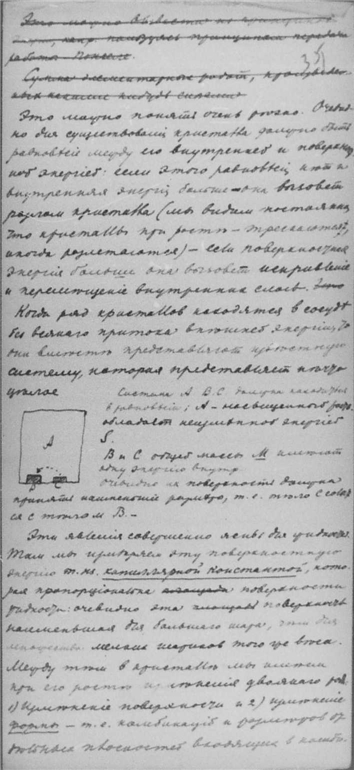 Это можно вывести из принципа
работы
Сумма элементарных работ, произведен-
ных какими нибудь силами
Это можно понять очень
но для существования кристалла должно быть
равновесие между его внутренней и поверхност
ной энергией: если этого равновесия нет и
внутренняя энергия больше – она вызовет
разлом кристалла (мы видим постоянно,
что кристаллы при росте – трескаются,
иногда разлетаются) – если поверхностная
энергия больше она вызовет искривление
и перемещение внутренних слоев.
Когда ряд кристаллов находятся в сосуде
без всякого притока внешней энергии,
они вместе представляют известную
систему, которая представляет
целое
Система А В С должна находиться
в равновесии; А – насыщенный
обладает неизменной энергией
А
В С
S.
В и С общей массы М имеют
одну энергию внутр
очевидно их поверхность должна
принять наименьшие размеры, т.е. тело С
ся с телом В –
Эти явления совершенно ясны для жидкости.
Там мы измеряем эту поверхностную
энергию т.н. капиллярной константой, кото-
рая пропорциональна площади поверхности
жидкости: очевидно эта площадь поверхность
наименьшая для большого шара, чем для
множества мелких шариков того же веса.
Между тем в кристаллах мы имеем
при его росте изменения двоякого рода
1) Изменение поверхности и 2) изменение
формы – т.е. комбинаций и размеров от-
дельных плоскостей входящих в комби-